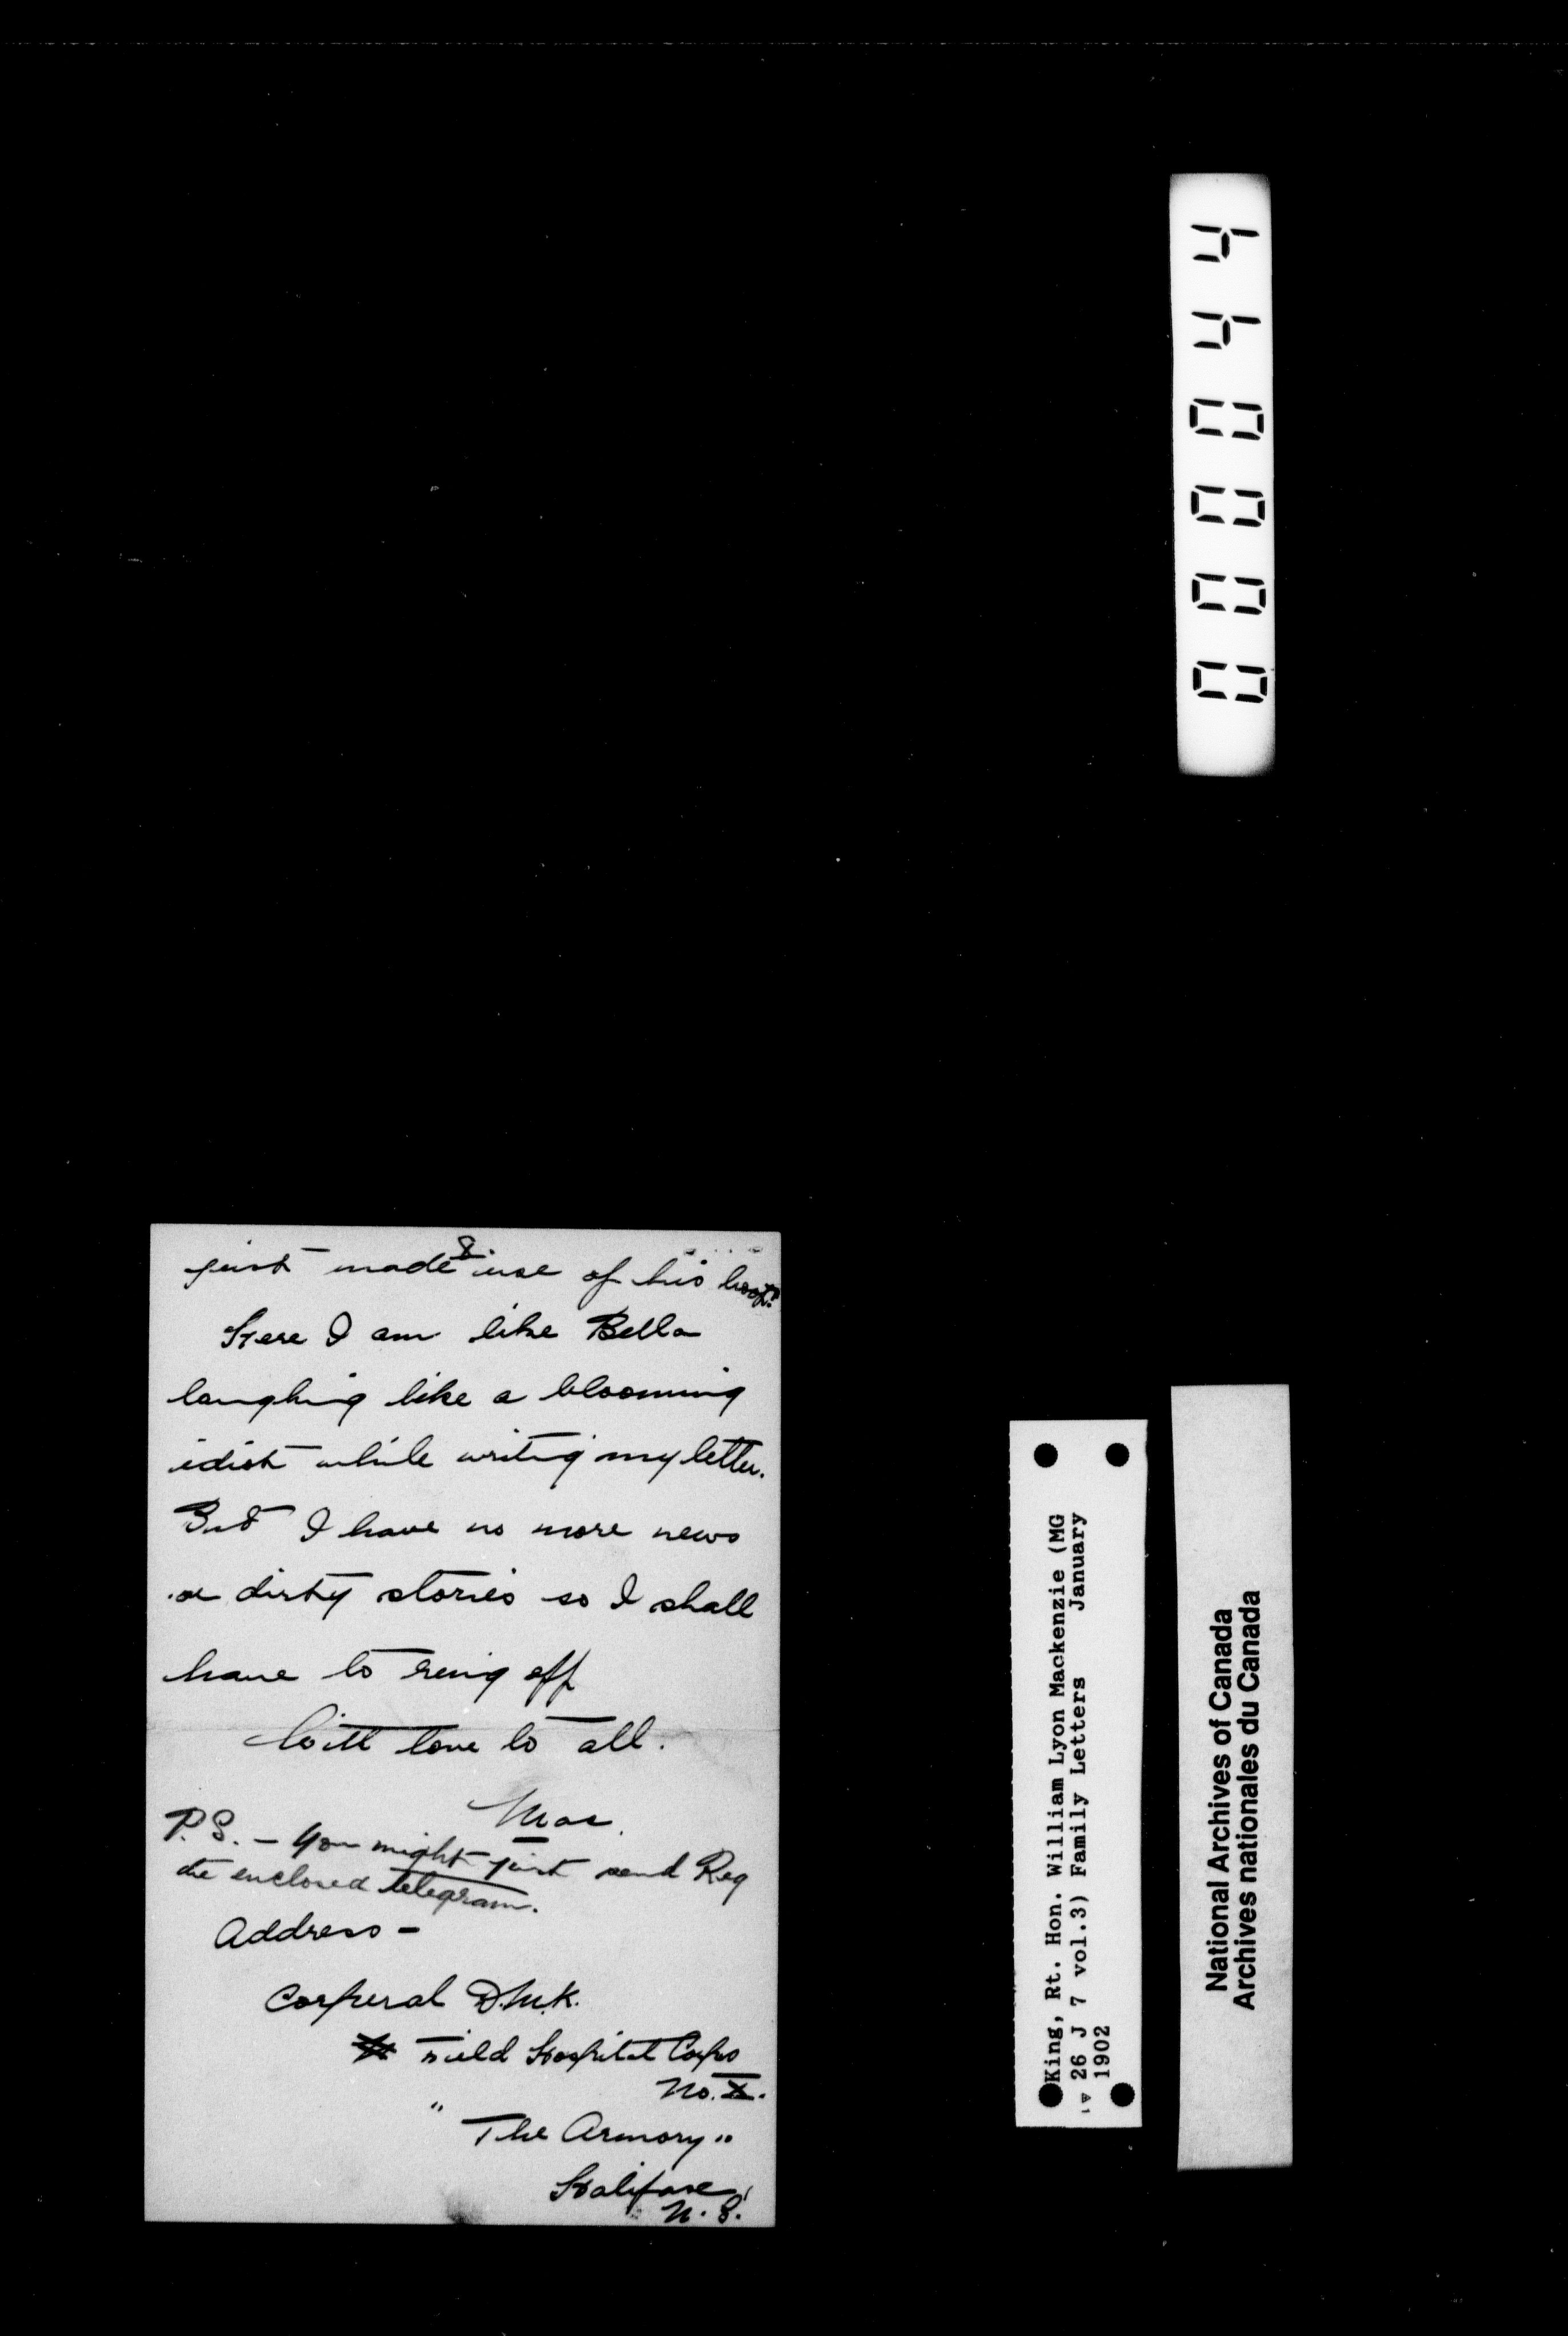 8.
just made use of his boot."
Here I am like Bella
laughing like a blooming
idiot while writing my letter.
But I have no more news
or dirty stories so I shall
have to ring off
With love to all.
Mac.
P.S. — You might just send Reg
the enclosed telegram.
Address —
Corporal D.M.K.
Field Hospital Corps
No. X.
"The Armory"
Halifax,
N.S.
000044
King, Rt. Hon. William Lyon Mackenzie (MG
26 J 7 vol.3) Family Letters January
1902
National Archives of Canada
Archives nationales du Canada